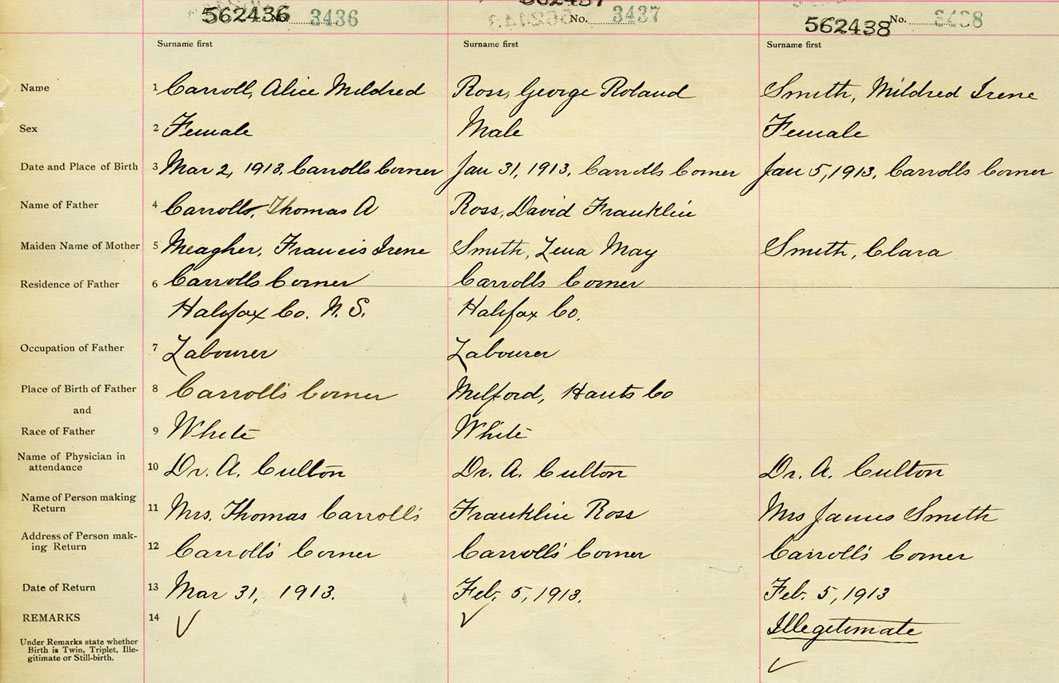 562436 3436 No. 3437 562438 No. 3438
Surname first Surname first Surname first
Name 1 Carroll, Alice Mildred Ross, George Roland Smith, Mildred Irene
Sex 2 Female Male Female
Date and Place of Birth 3 Mar 2, 1913. Carrolls Corner Jan 31, 1913. Carrolls Corner Jan 5, 1913. Carrolls Corner
Name of Father 4 Carrolls, Thomas A Ross, David Franklin
Maiden Name of Mother 5 Meagher, Francis Irene Smith, Lena May Smith, Clara
Residence of Father 6 Carrolls Corner Carrolls Corner
Halifax Co. N.S. Halifax Co.
Occupation of Father 7 Labourer Labourer
Place of Birth of Father 8 Carroll's Corner Milford, Hants Co
and
Race of Father 9 White White
Name of Physician in
attendance 10 Dr. A. Culton Dr. A. Culton Dr. A. Culton
Name of Person making
Return 11 Mrs. Thomas Carroll's Franklin Ross Mrs James Smith
Address of Person mak-
ing Return 12 Carroll's Corner Carroll's Corner Carroll's Corner
Date of Return 13 Mar 31, 1913. Feb. 5, 1913. Feb. 5, 1913
REMARKS 14 Illegitimate
Under Remarks state whether
Birth is Twin, Triplet, Ille-
gitimate or Still-birth.